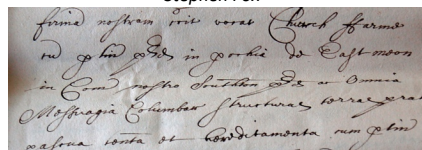 firmã nostram voit vocat Church ffarme
cu ptin pd in pochia de Eastmeon
in Com nostro Southton pd ac Omnia
Messuagia Columbar Structuras terras prat
pascua tenta et hereditamenta cum ptin